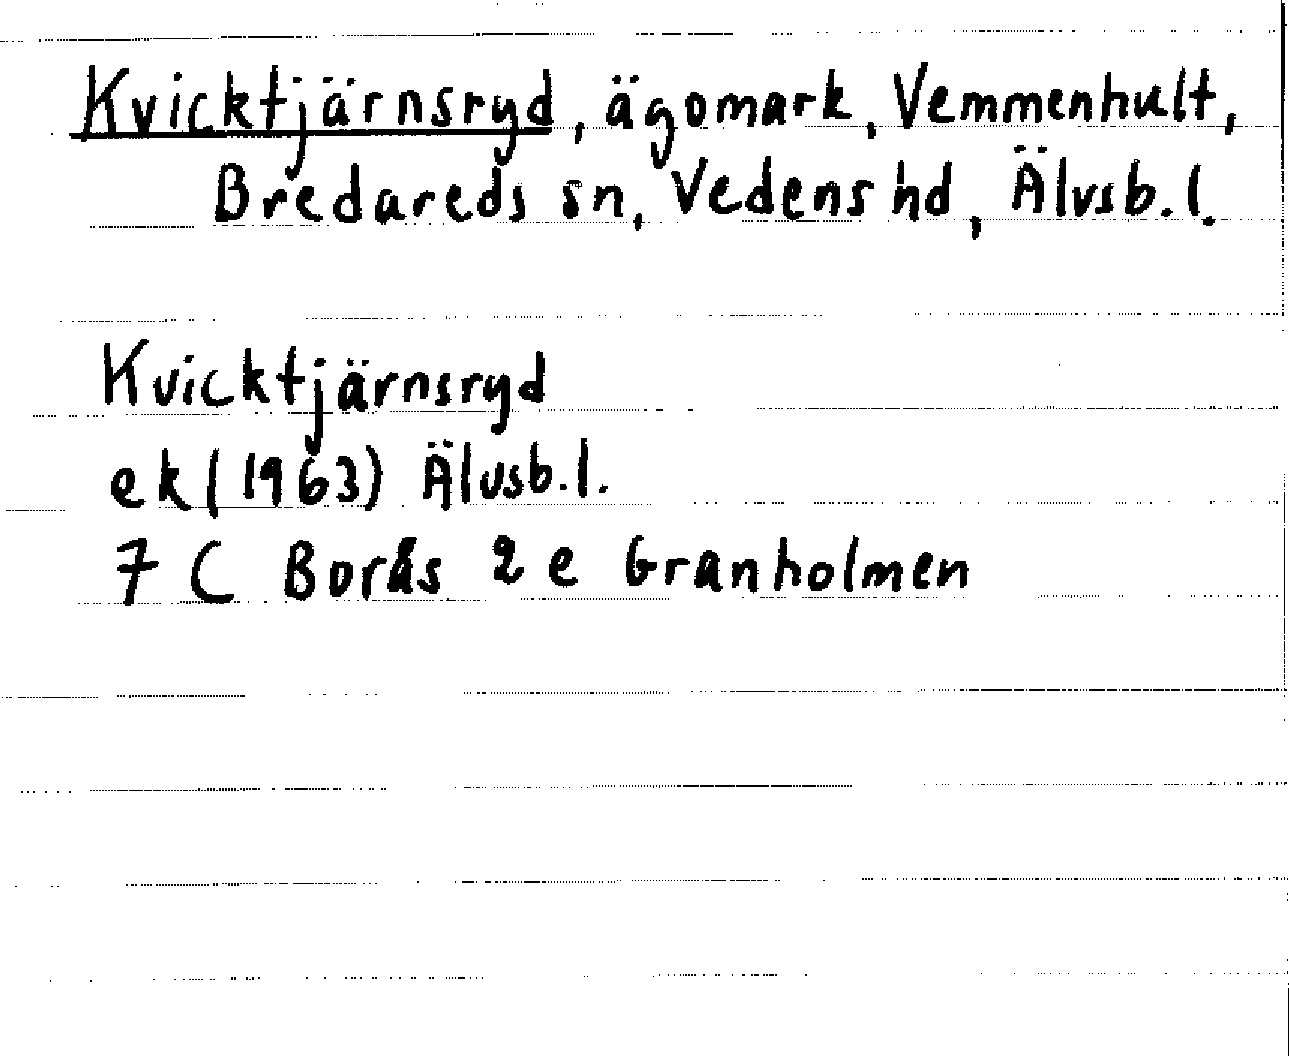 Kvicktjärnsryd, ägomark, Vemmenhult,
Bredareds sn, Vedens hd, Älvsb. l.
Kvicktjärnsryd
ek (1963) Älvsb. l.
7 C Borås 2 e Granholmen